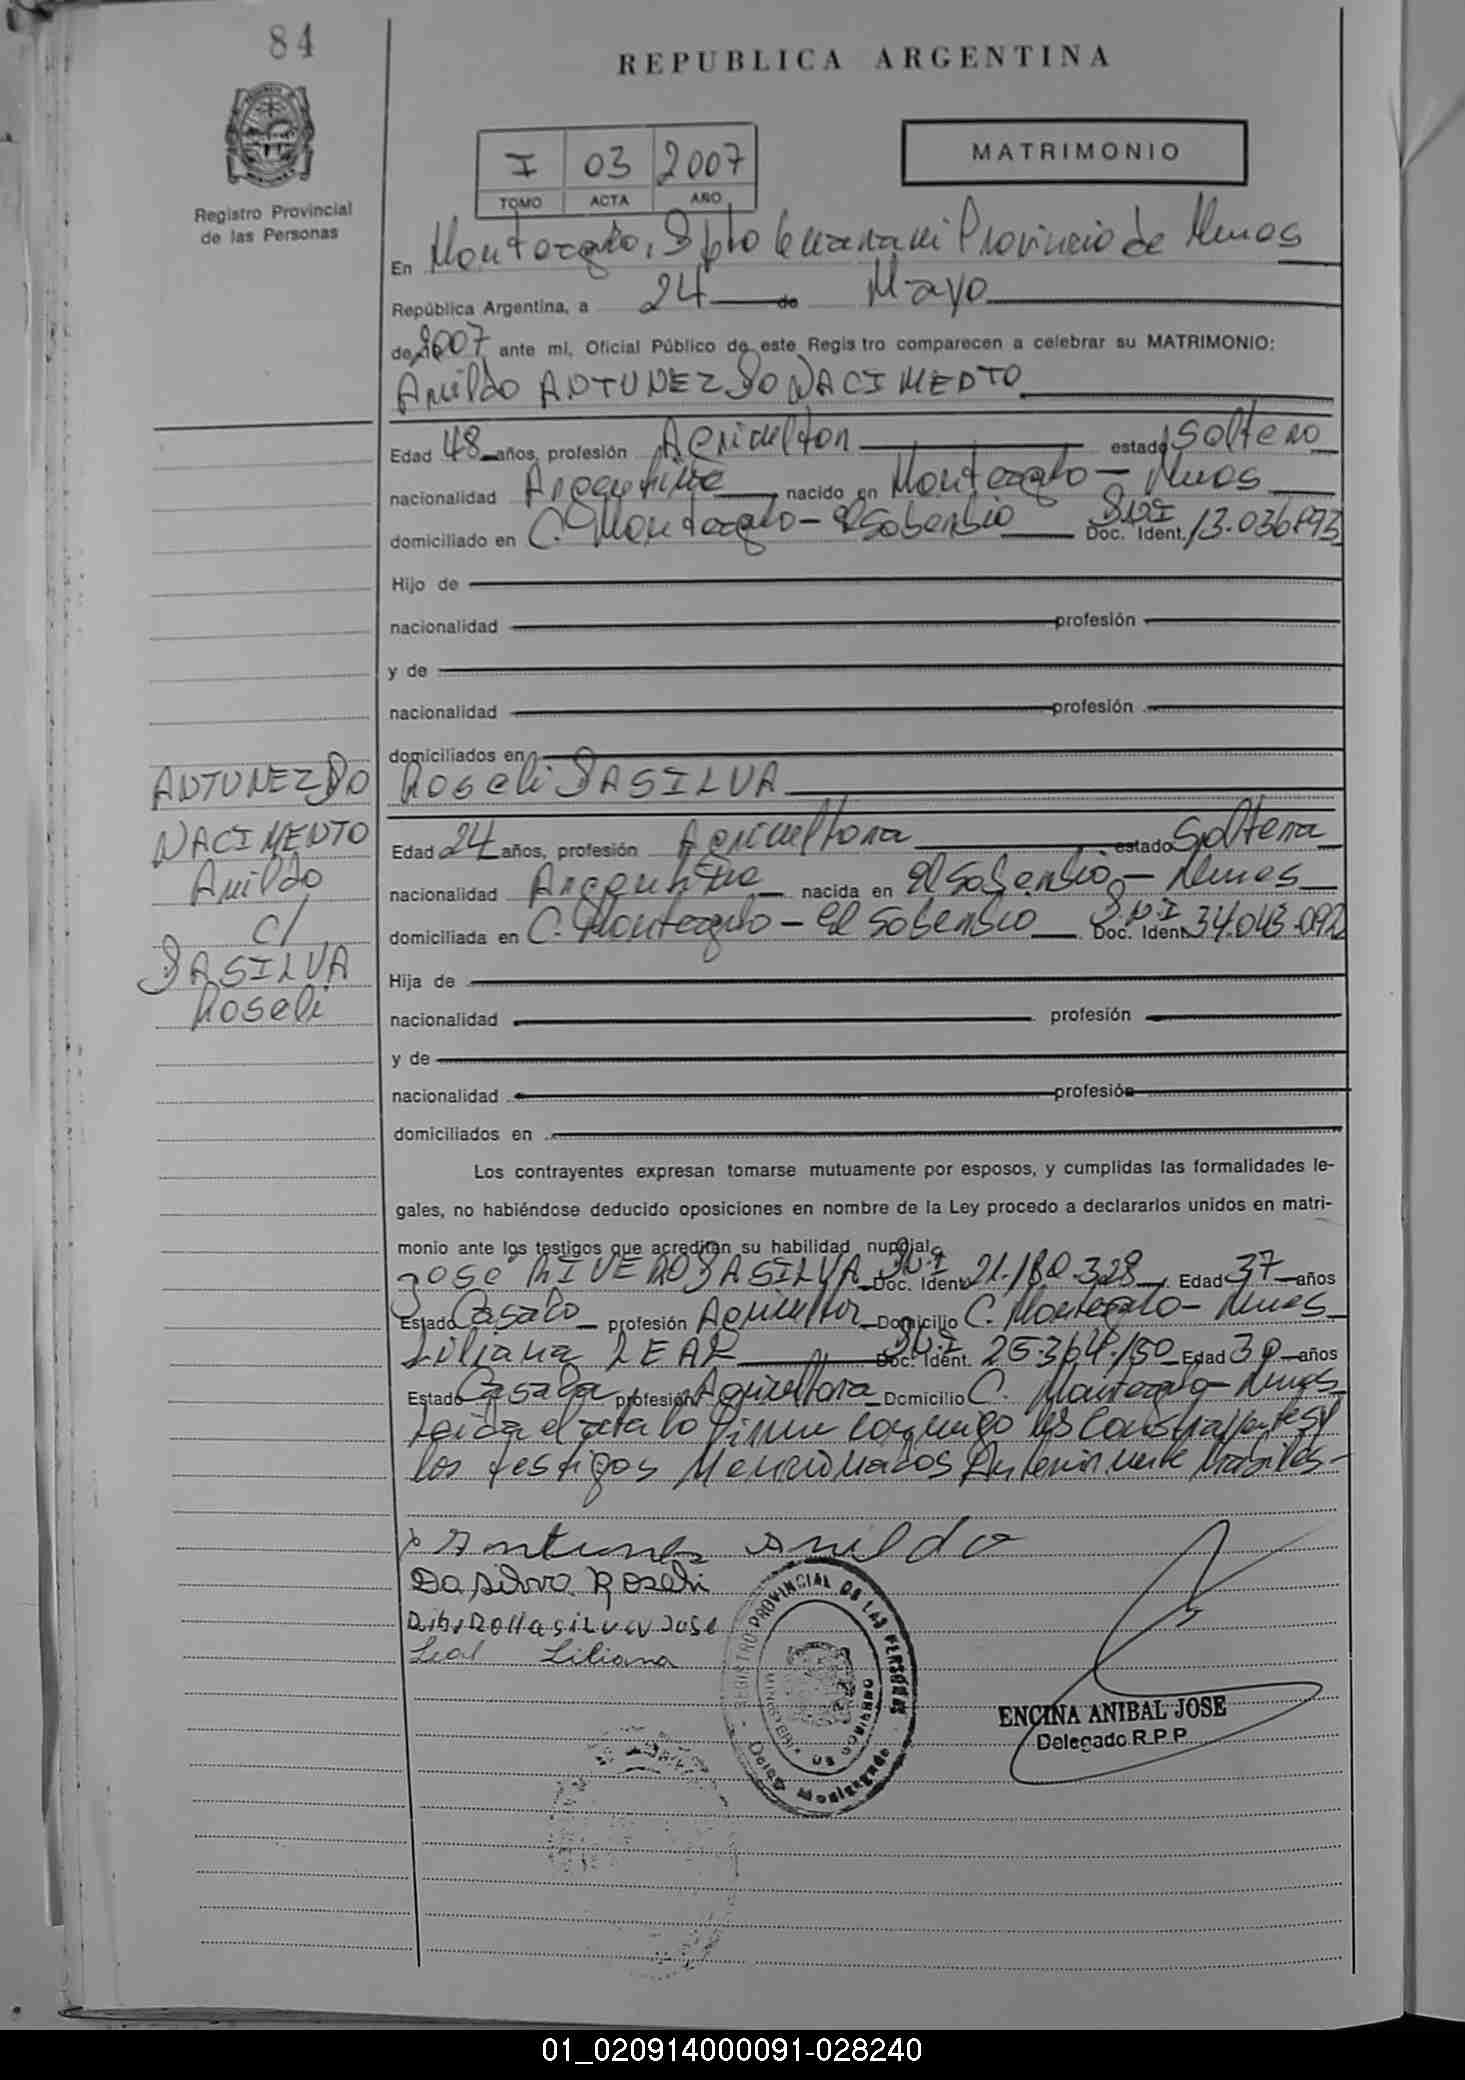 84
REPUBLICA ARGENTINA
Registro Provincial
de las Personas
I 03 2007
TOMO ACTA AÑO
MATRIMONIO
En Monteagudo, Dpto Guarani Provincia de Mnes
República Argentina, a 24 de Mayo
de 2007 ante mí, Oficial Público de este Registro comparecen a celebrar su MATRIMONIO:
Anildo ANTUNEZ DO NACIMENTO
Edad 48 años, profesión Agricultor estado Soltero
nacionalidad Argentina nacido en Monteagudo - Mnes
domiciliado en C. Monteagudo - El Soberbio D.N.I Doc. Ident. 13.036.893
Hijo de
nacionalidad profesión
y de
nacionalidad profesión
domiciliados en
ANTUNEZ DO
NACIMENTO
Anildo
c/
DA SILVA
Roseli
Roseli DA SILVA
Edad 24 años, profesión Agricultora estado Soltera
nacionalidad Argentina nacida en El Soberbio - Mnes
domiciliada en C. Monteagudo - El Soberbio D.N.I Doc. Ident. 34.043.092
Hija de
nacionalidad profesión
y de
nacionalidad profesión
domiciliados en
Los contrayentes expresan tomarse mutuamente por esposos, y cumplidas las formalidades le-
gales, no habiéndose deducido oposiciones en nombre de la Ley procedo a declararlos unidos en matri-
monio ante los testigos que acreditan su habilidad nupcial
José RIVERO DA SILVA D.N.I Doc. Ident. 21.180.328 Edad 37 años
Estado Casado profesión Agricultor Domicilio C. Monteagudo - Mnes
Liliana LEAL D.N.I Doc. Ident. 25.364.150 Edad 30 años
Estado Casada profesión Agricultora Domicilio C. Monteagudo - Mnes
Leida el acta lo firman conmigo los Contrayentes y
los testigos Mencionados Anteriormente habiles -
Antunes Anildo
Da silva Roseli
Leal Liliana
REGISTRO PROVINCIAL DE LAS PERSONAS
MINISTERIO DE GOBIERNO
Deleg. Monteagudo
ENCINA ANIBAL JOSE
Delegado R.P.P.
01_020914000091-028240